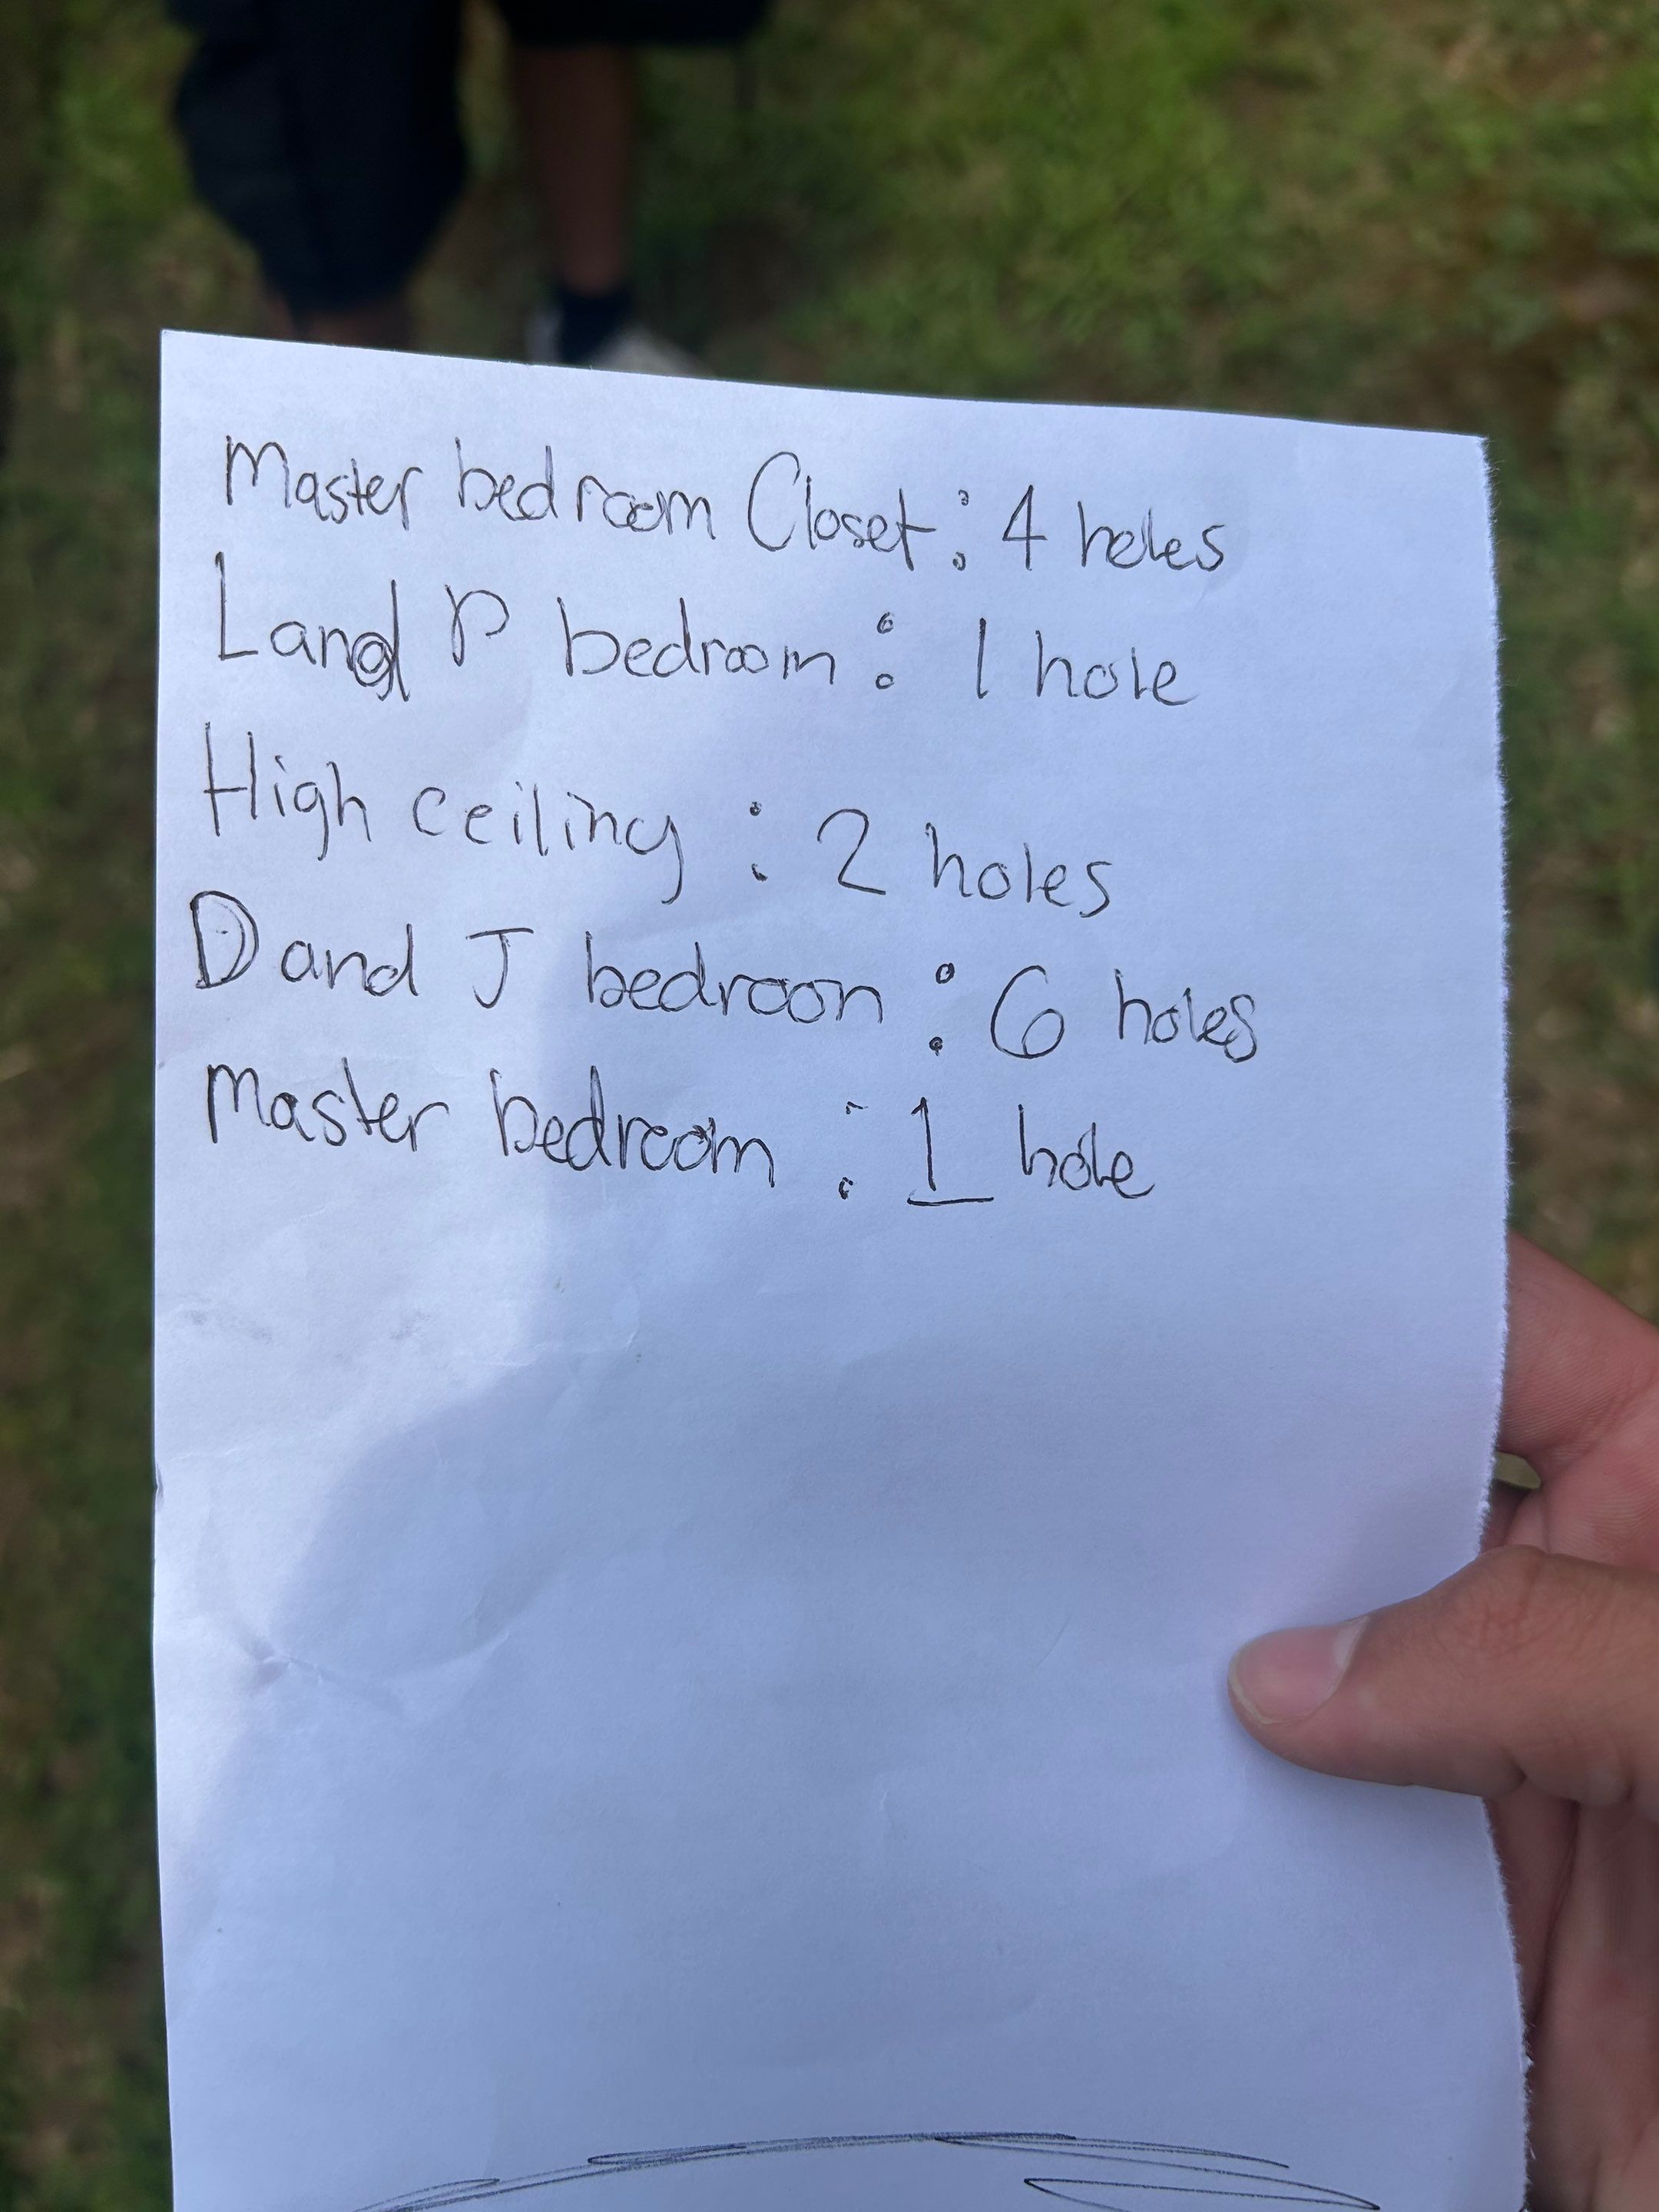 Master bedroom Closet: 4 holes
L and P bedroom: 1 hole
High ceiling: 2 holes
D and J bedroon: 6 holes
Master bedroom: 1 hole